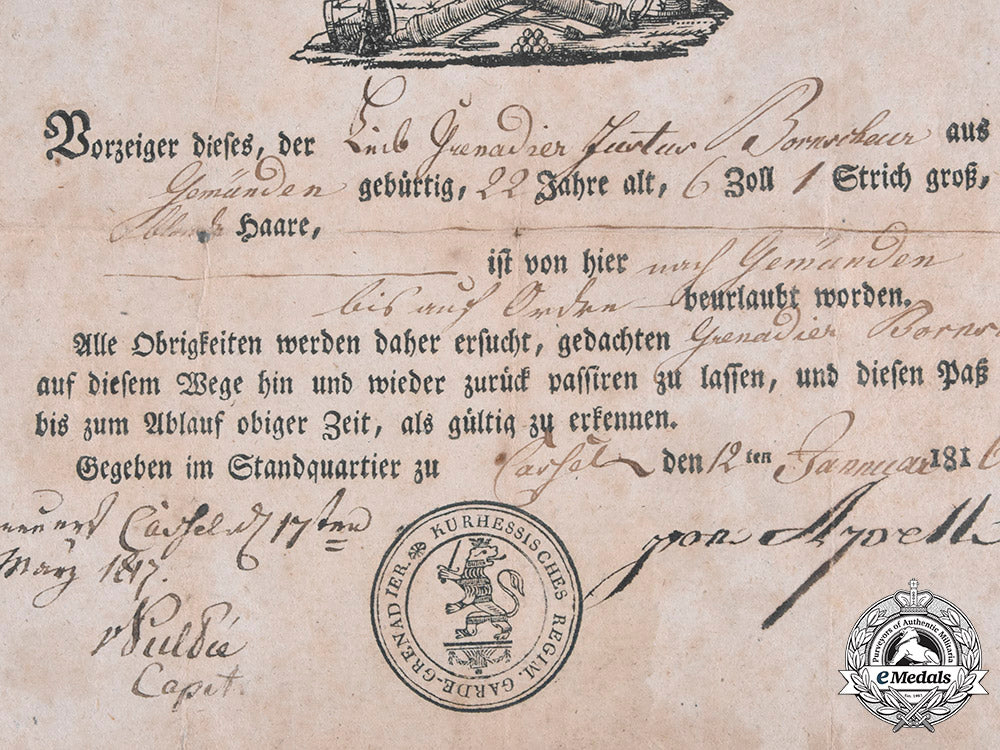 Vorzeiger dieses, der Leib Grenadier Justus Bornscheur aus
Gemünden gebürtig, 22 Jahre alt, 6 Zoll 1 Strich groß,
Haare,
ist von hier nach Gemünden
bis auf Ordre beurlaubt worden.
Alle Obrigkeiten werden daher ersucht, gedachten Grenadier Borns
auf diesem Wege hin und wieder zurück passiren zu lassen, und diesen Paß
bis zum Ablauf obiger Zeit, als gültig zu erkennen.
Gegeben im Standquartier zu Cassel den 12ten Januar 1816
Cassel d 17ten
März 1817.
Capit
KURHESSISCHES REGIM. GARDE-GRENADIER.
von
Purveyors of Authentic Militaria
eMedals